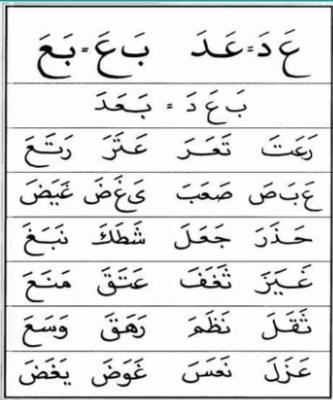 عَ دَ = عَدَ بَ عَ = بَعَ
بَ عَ دَ = بَعَدَ
رَعَتَ تَعَرَ عَتَرَ رَتَعَ
عَبَصَ صَعَبَ يَغَضَ غَيَضَ
حَذَرَ جَعَلَ شَطَكَ نَبَغَ
غَيَزَ ثَغَفَ عَتَقَ مَنَعَ
ثَقَلَ نَظَمَ رَهَقَ وَسَعَ
عَزَلَ نَعَسَ غَوَضَ يَغَضَ